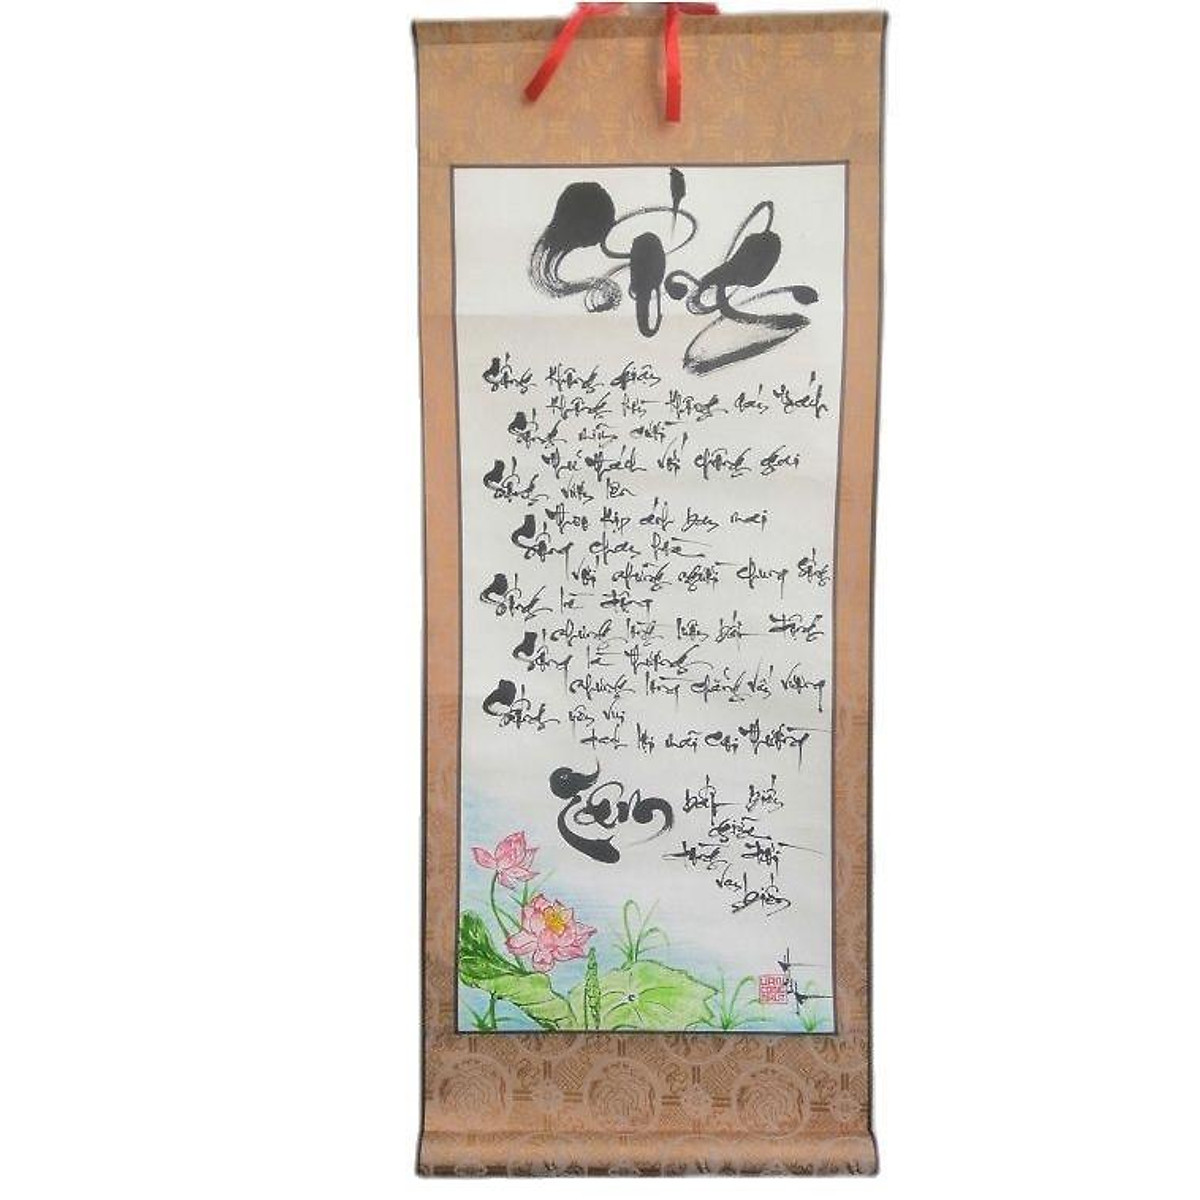 Sống
Sống không giận
không hờn không oán trách
Sống mỉm cười
thử thách với chông gai
Sống vươn lên
theo kịp ánh ban mai
Sống chan hòa
với những người chung sống
Sống là động
nhưng lòng luôn bất động
Sống là thương
nhưng lòng chẳng vấn vương
Sống yên vui
danh lợi mãi coi thường
Tâm bất biến
giữa
dòng đời
vạn biến